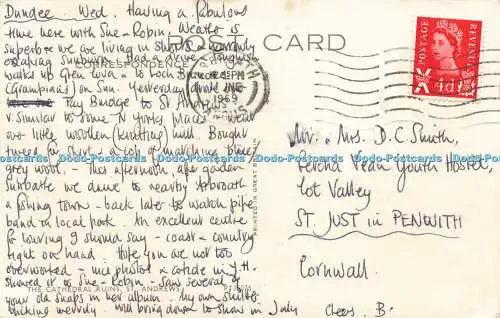 Dundee – Wed. Having a fabulous
time here with Sue & Robin. Weather is
superb & we are living in shorts & narrowly
escaping sunburn. Had a drive &
walks up Glen Clova – to Loch
(Grampians) on Sun. Yesterday drove
Tay Bridge to St Andrews
v. similar to some N. Yorks places. Went
over little woollen (knitting) mill. Bought
tweed for skirt & a lot of matching blue
grey wool. – This afternoon, after garden
sunbathe we drove to nearby Arbroath
a fishing town – back later to watch pipe
band in local park. An excellent centre
for touring I should say – coast & country
right on hand. Hope you are not too
overworked – nice photos & article in Y.H.
showed it to Sue & Robin – saw several of
your old snaps in her album. My own shutter
clicking merrily & will bring down to show in July
Cheers. B.
POST CARD
CORRESPONDENCE
1969
PRINTED IN GREAT BRITAIN
THE CATHEDRAL RUINS, ST. ANDREWS
POSTAGE
REVENUE
4d
Mr. & Mrs. D.C. Smith,
Youth Hostel,
Cot Valley
ST. JUST in PENWITH
Cornwall.
Dodo-Postcards.com